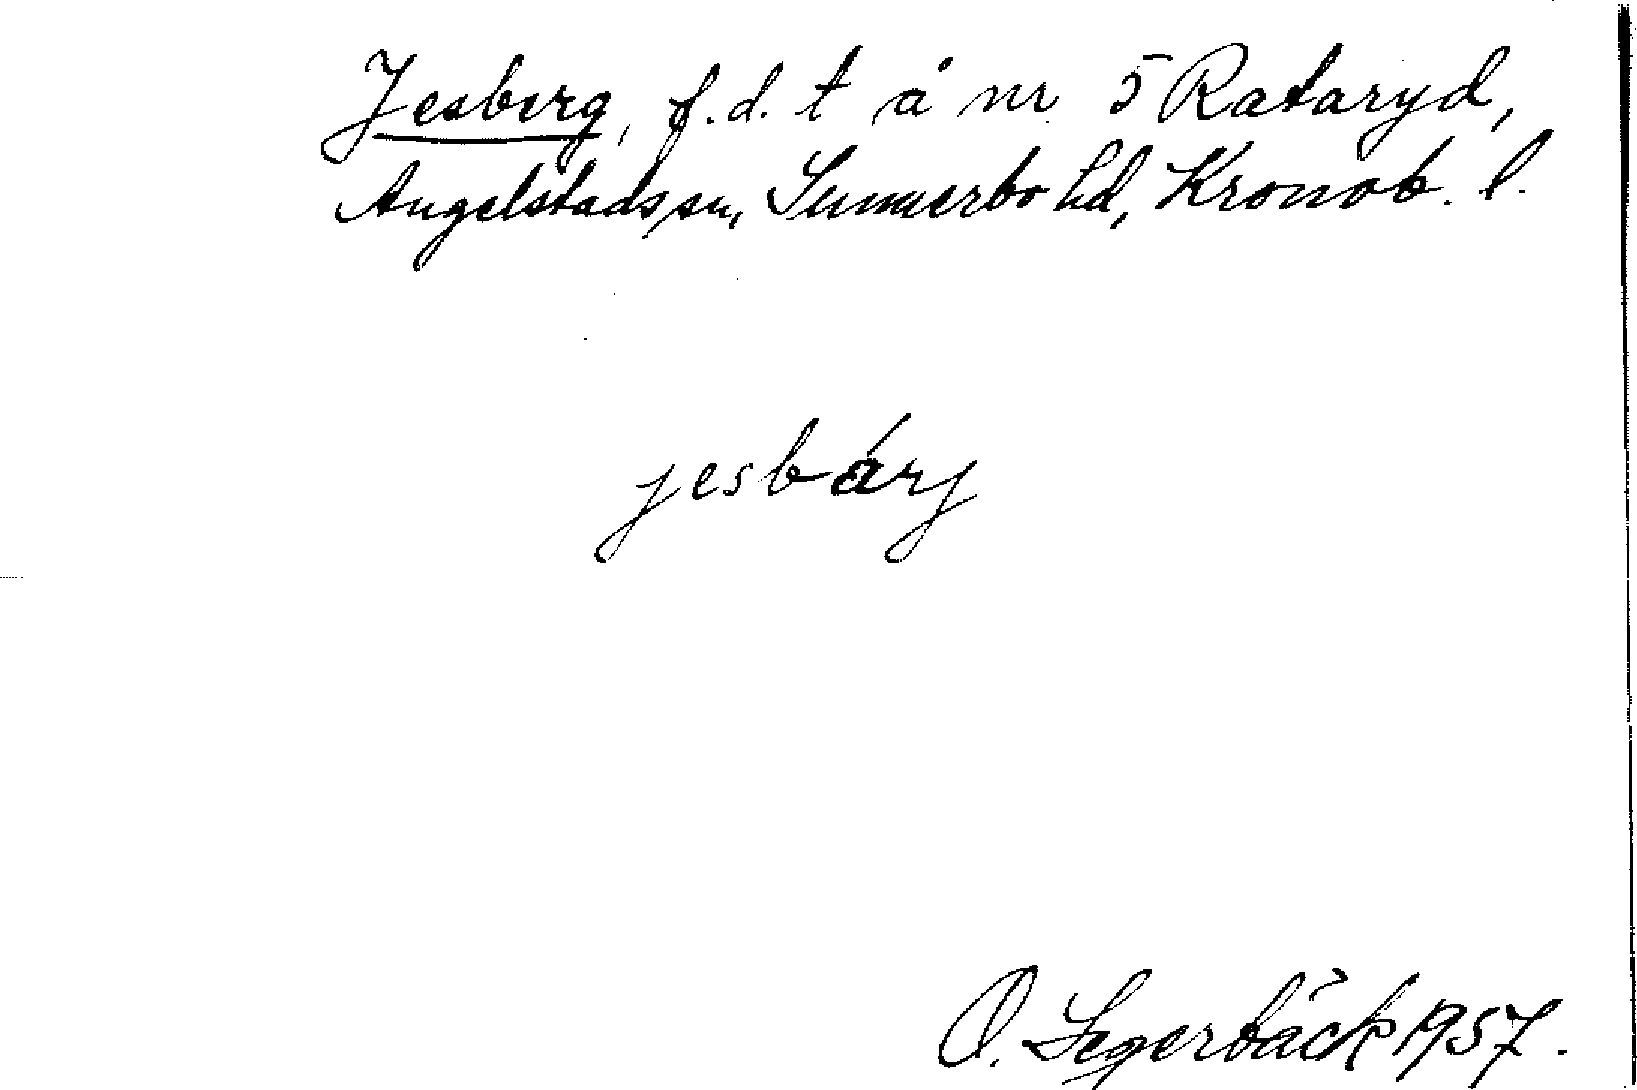 Jesberg, f.d. t å nr 5 Rataryd,
Angelstads sn, Sunnerbo hd, Kronob. l.
jesbárj
O. Segerbäck 1957.